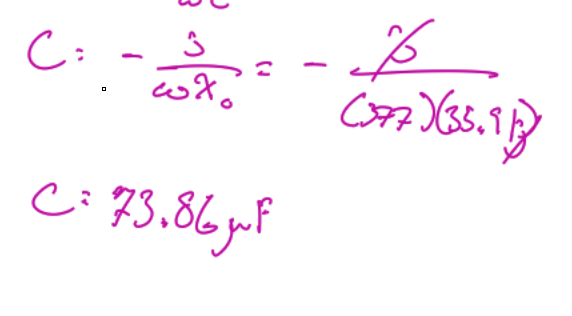 C = - j / ωX₀ = - j / (377)(35.9 j)
C = 73.86 μF